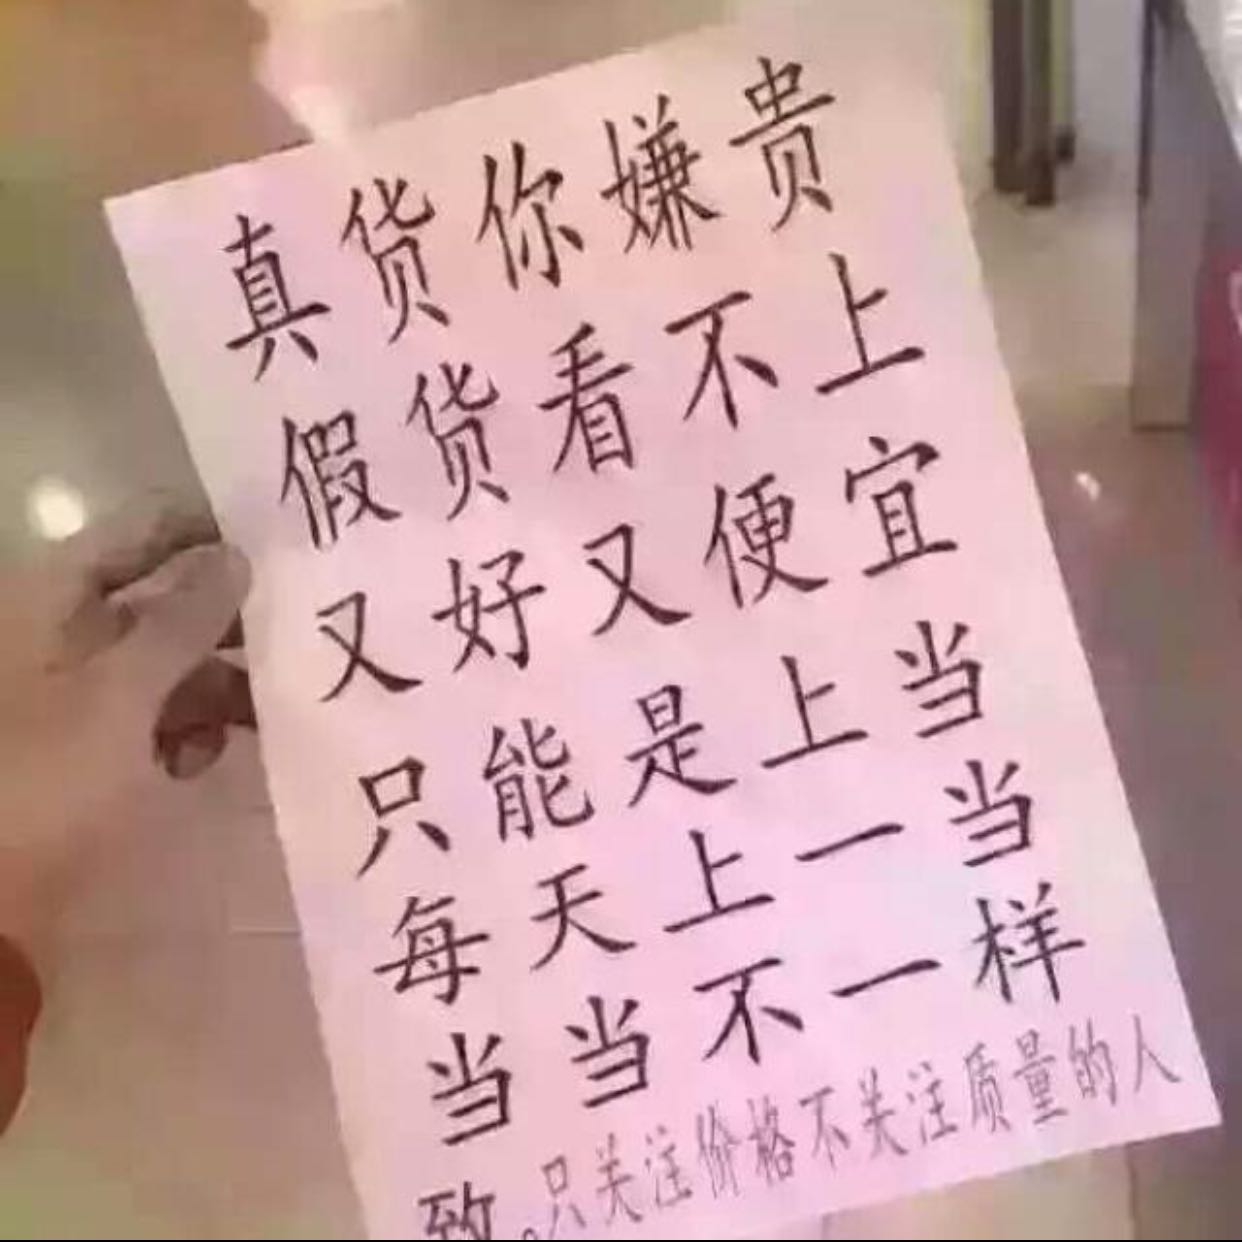 真货你嫌贵
假货看不上
又好又便宜
只能是上当
每天上一当
当当不一样
致。只关注价格不关注质量的人